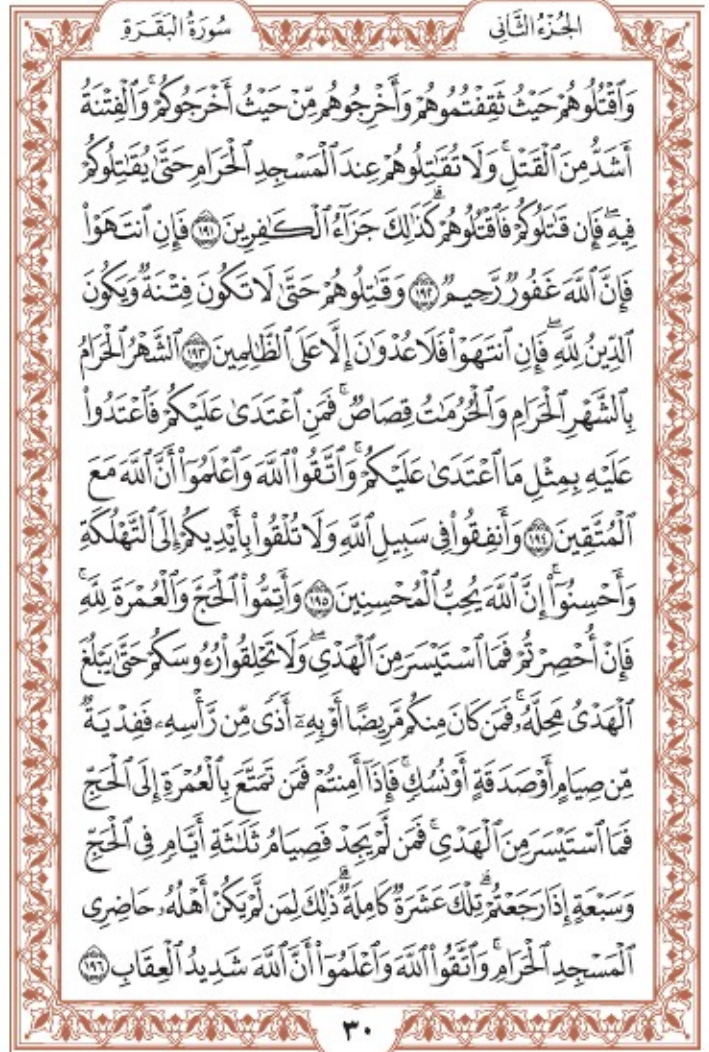 الجُزْءُ الثَّانِي
سُورَةُ الْبَقَرَةِ
وَٱقْتُلُوهُمْ حَيْثُ ثَقِفْتُمُوهُمْ وَأَخْرِجُوهُم مِّنْ حَيْثُ أَخْرَجُوكُمْ ۚ وَٱلْفِتْنَةُ
أَشَدُّ مِنَ ٱلْقَتْلِ ۚ وَلَا تُقَـٰتِلُوهُمْ عِندَ ٱلْمَسْجِدِ ٱلْحَرَامِ حَتَّىٰ يُقَـٰتِلُوكُمْ
فِيهِ ۖ فَإِن قَـٰتَلُوكُمْ فَٱقْتُلُوهُمْ ۗ كَذَٰلِكَ جَزَآءُ ٱلْكَـٰفِرِينَ ١٩١ فَإِنِ ٱنتَهَوْا۟
فَإِنَّ ٱللَّهَ غَفُورٌ رَّحِيمٌ ١٩٢ وَقَـٰتِلُوهُمْ حَتَّىٰ لَا تَكُونَ فِتْنَةٌ وَيَكُونَ
ٱلدِّينُ لِلَّهِ ۖ فَإِنِ ٱنتَهَوْا۟ فَلَا عُدْوَٰنَ إِلَّا عَلَى ٱلظَّـٰلِمِينَ ١٩٣ ٱلشَّهْرُ ٱلْحَرَامُ
بِٱلشَّهْرِ ٱلْحَرَامِ وَٱلْحُرُمَـٰتُ قِصَاصٌ ۚ فَمَنِ ٱعْتَدَىٰ عَلَيْكُمْ فَٱعْتَدُوا۟
عَلَيْهِ بِمِثْلِ مَا ٱعْتَدَىٰ عَلَيْكُمْ ۚ وَٱتَّقُوا۟ ٱللَّهَ وَٱعْلَمُوٓا۟ أَنَّ ٱللَّهَ مَعَ
ٱلْمُتَّقِينَ ١٩٤ وَأَنفِقُوا۟ فِى سَبِيلِ ٱللَّهِ وَلَا تُلْقُوا۟ بِأَيْدِيكُمْ إِلَى ٱلتَّهْلُكَةِ
وَأَحْسِنُوٓا۟ ۛ إِنَّ ٱللَّهَ يُحِبُّ ٱلْمُحْسِنِينَ ١٩٥ وَأَتِمُّوا۟ ٱلْحَجَّ وَٱلْعُمْرَةَ لِلَّهِ ۚ
فَإِنْ أُحْصِرْتُمْ فَمَا ٱسْتَيْسَرَ مِنَ ٱلْهَدْىِ ۖ وَلَا تَحْلِقُوا۟ رُءُوسَكُمْ حَتَّىٰ يَبْلُغَ
ٱلْهَدْىُ مَحِلَّهُۥ ۚ فَمَن كَانَ مِنكُم مَّرِيضًا أَوْ بِهِۦٓ أَذًى مِّن رَّأْسِهِۦ فَفِدْيَةٌ
مِّن صِيَامٍ أَوْ صَدَقَةٍ أَوْ نُسُكٍ ۚ فَإِذَآ أَمِنتُمْ فَمَن تَمَتَّعَ بِٱلْعُمْرَةِ إِلَى ٱلْحَجِّ
فَمَا ٱسْتَيْسَرَ مِنَ ٱلْهَدْىِ ۚ فَمَن لَّمْ يَجِدْ فَصِيَامُ ثَلَـٰثَةِ أَيَّامٍ فِى ٱلْحَجِّ
وَسَبْعَةٍ إِذَا رَجَعْتُمْ ۗ تِلْكَ عَشَرَةٌ كَامِلَةٌ ۗ ذَٰلِكَ لِمَن لَّمْ يَكُنْ أَهْلُهُۥ حَاضِرِى
ٱلْمَسْجِدِ ٱلْحَرَامِ ۚ وَٱتَّقُوا۟ ٱللَّهَ وَٱعْلَمُوٓا۟ أَنَّ ٱللَّهَ شَدِيدُ ٱلْعِقَابِ ١٩٦
٣٠